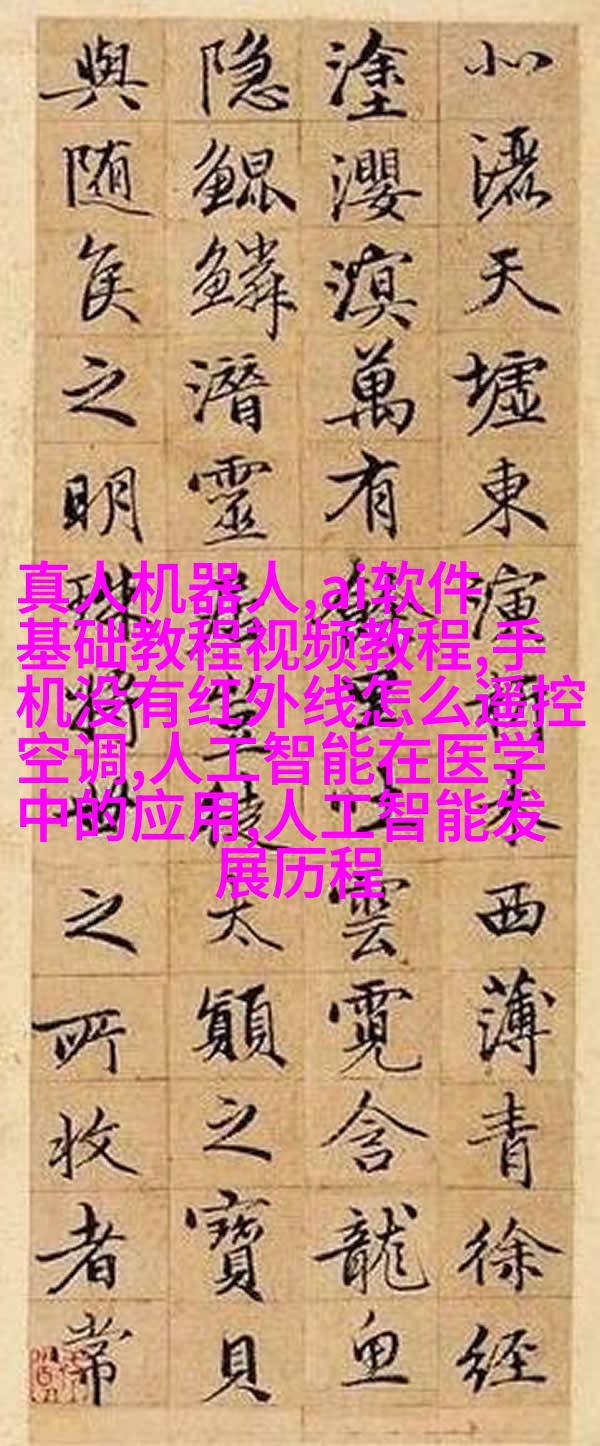 北灑天墟東演析木西薄青徐經
塗瀴溟萬有餘里吐雲霓含龍魚
隐鯤鱗潛靈居豈徒太顛之寶貝
與随侯之明珠將世之所收者常
真人机器人,ai软件
基础教程视频教程,手
机没有红外线怎么遥控
空调,人工智能在医学
中的应用,人工智能发
展历程